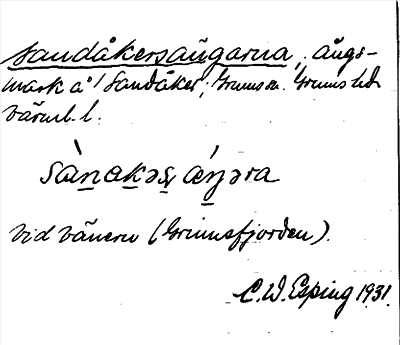 Sandåkersängarna, ängs-
mark å Sandåker, Grums sn. Grums hd
Värml. l.
sànakəs ǽŋəra
vid Vänern (Grumsfjorden).
C.W. Esping 1931.